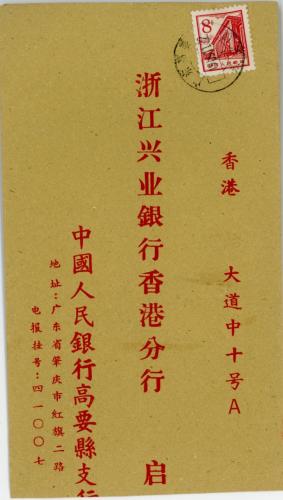 8
香港 大道中十号A
浙江兴业銀行香港分行 启
中國人民銀行高要縣支行
地址:广东省肇庆市红旗二路
电报挂号:四一〇〇七